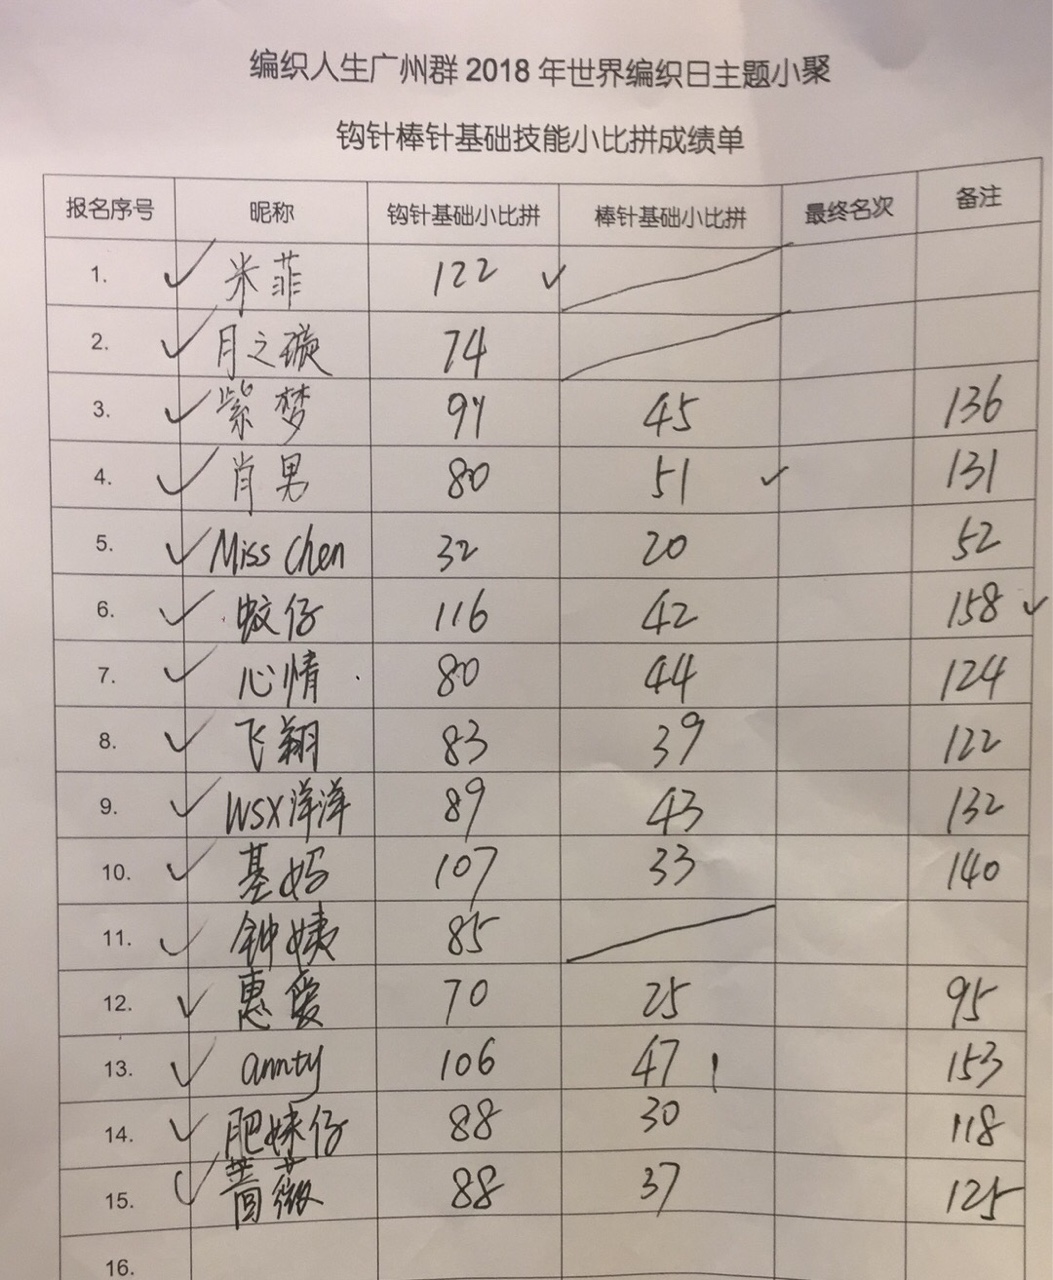 编织人生广州群 2018 年世界编织日主题小聚
钩针棒针基础技能小比拼成绩单
报名序号 昵称 钩针基础小比拼 棒针基础小比拼 最终名次 备注
1. ✓ 米菲 122 ✓
2. ✓ 月之璇 74
3. ✓ 紫梦 91 45 136
4. ✓ 肖男 80 51 ✓ 131
5. ✓ Miss Chen 32 20 52
6. ✓ 蚊仔 116 42 158 ✓
7. ✓ 心情 80 44 124
8. ✓ 飞翔 83 39 122
9. ✓ WSX洋洋 89 43 132
10. ✓ 基妈 107 33 140
11. ✓ 钟姨 85
12. ✓ 惠爱 70 25 95
13. ✓ annty 106 47 153
14. ✓ 肥妹仔 88 30 118
15. ✓ 蔷薇 88 37 125
16.